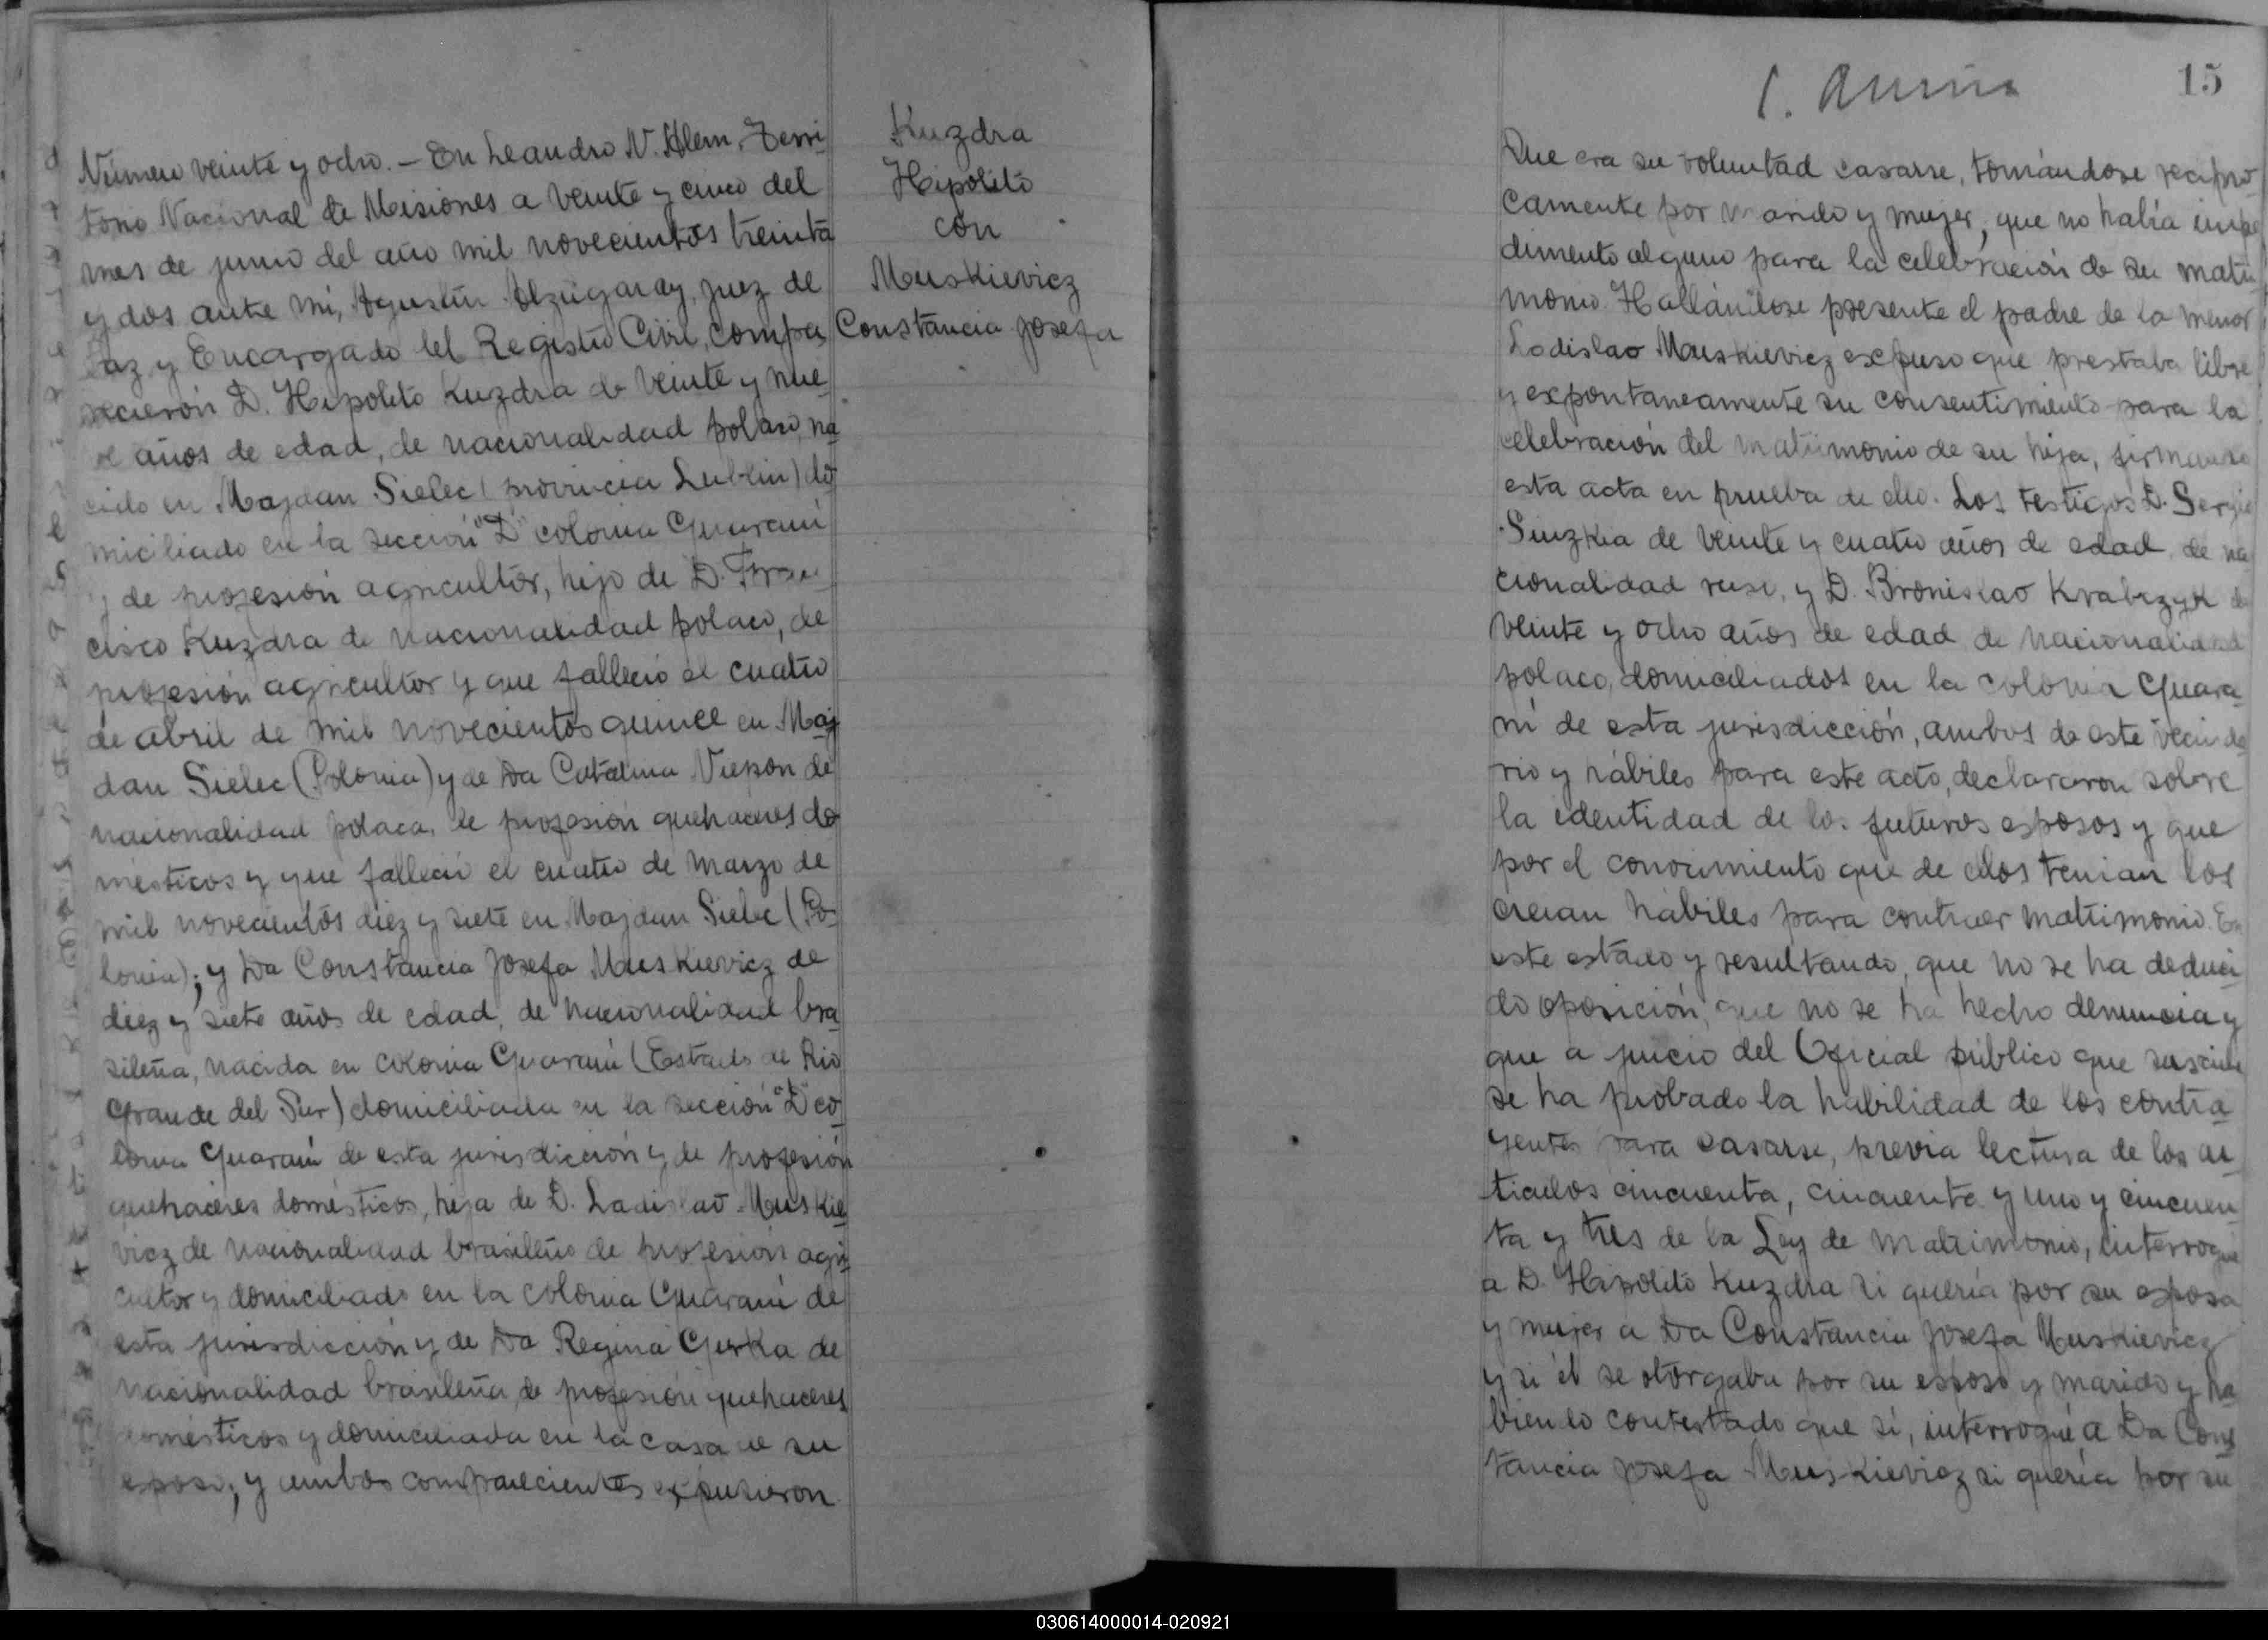 Número veinte y ocho. — En Leandro N. Alem, Terri
torio Nacional de Misiones a veinte y cinco del
mes de junio del año mil novecientos treinta
y dos ante mí, Agustín Alzugaray, juez de
Paz y Encargado del Registro Civil, compa
recieron D. Hipolito Kuzdra de veinte y nue
ve años de edad, de nacionalidad polaco, na
cido en Majdan Sielec (provincia Lublin) do
miciliado en la sección "D" colonia Guaraní
y de profesión agricultor, hijo de D. Fran
cisco Kuzdra de nacionalidad polaco, de
profesión agricultor y que falleció el cuatro
de abril de mil novecientos quince en Maj
dan Sielec (Polonia) y de Da Catalina
nacionalidad polaca, de profesión quehaceres do
mésticos y que falleció el cuatro de marzo de
mil novecientos diez y siete en Majdan Sielec (Po
lonia); y Da Constancia Josefa Muskievicz de
diez y siete años de edad, de nacionalidad bra
sileña, nacida en colonia Guaraní (Estado de Rio
Grande del Sur) domiciliada en la sección "D" co
lonia Guaraní de esta jurisdicción y de profesión
quehaceres domésticos, hija de D. Ladislao Muskie
vicz de nacionalidad brasileño de profesión agri
cultor y domiciliado en la colonia Guaraní de
esta jurisdicción y de Da Regina Gurka de
nacionalidad brasileña, de profesión quehaceres
domésticos y domiciliada en la casa de su
esposo; y ambos comparecientes expusieron
Kuzdra
Hipolito
con
Muskievicz
Constancia Josefa
15
Que era su voluntad casarse, tomándose recipro
camente por marido y mujer, que no había impe
dimento alguno para la celebración de su matri
monio. Hallándose presente el padre de la menor
Ladislao Muskievicz expuso que prestaba libre
y expontaneamente su consentimiento para la
celebración del matrimonio de su hija, firmando
esta acta en prueba de ello. Los testigos D. Sergio
de veinte y cuatro años de edad, de na
cionalidad ruso, y D. Bronislao Krabczyk de
veinte y ocho años de edad de nacionalidad
polaco, domiciliados en la colonia Guara
ní de esta jurisdicción, ambos de este vecinda
rio y hábiles para este acto, declararon sobre
la identidad de los futuros esposos y que
por el conocimiento que de ellos tenian los
creian hábiles para contraer matrimonio. En
este estado y resultando, que no se ha deduci
do oposición, que no se ha hecho denuncia y
que a juicio del Oficial público que suscribe
se ha probado la habilidad de los contra
yentes para casarse, previa lectura de los ar
ticulos cincuenta, cincuenta y uno y cincuen
ta y tres de la Ley de matrimonio, interrogué
a D. Hipolito Kuzdra si quería por su esposa
y mujer a Da Constancia Josefa Muskievicz
y si él se otorgaba por su esposo y marido y ha
biendo contestado que sí, interrogué a Da Cons
tancia Josefa Muskievicz si quería por su
030614000014-020921